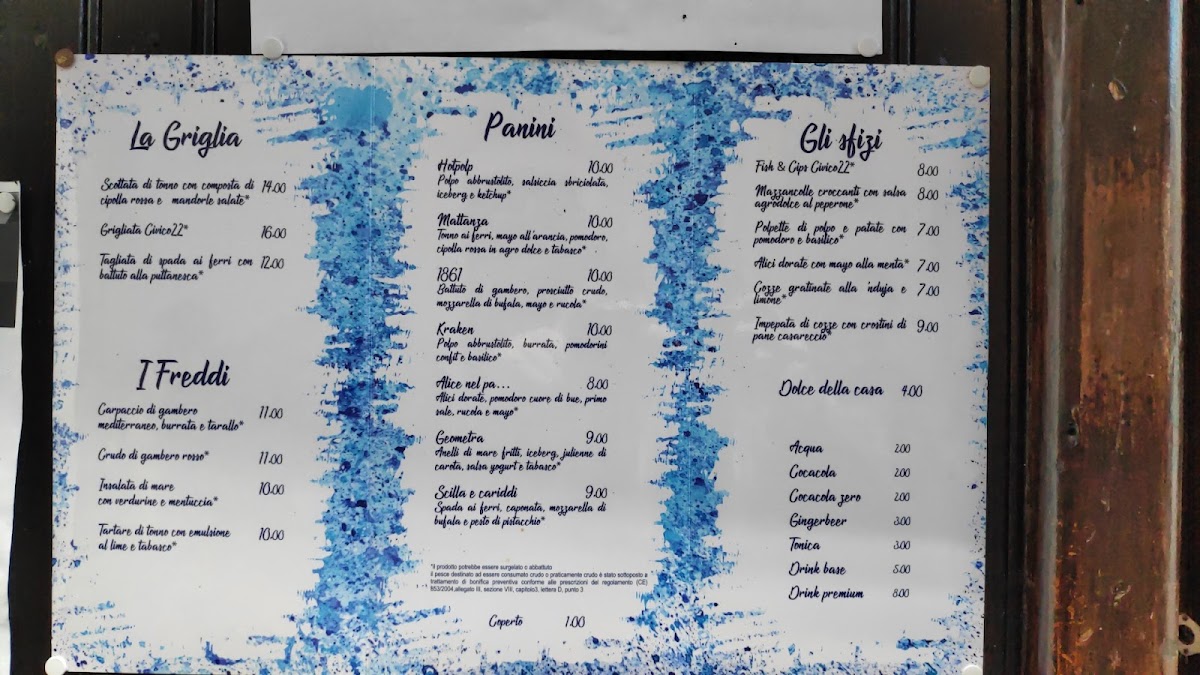 La Griglia
Scottata di tonno con composta di 14.00
cipolla rossa e mandorle salate*
Grigliata Civico22* 16.00
Tagliata di spada ai ferri con 12.00
battuto alla puttanesca*
I Freddi
Carpaccio di gambero 11.00
mediterraneo, burrata e tarallo*
Crudo di gambero rosso* 11.00
Insalata di mare 10.00
con verdurine e mentuccia*
Tartare di tonno con emulsione 10.00
al lime e tabasco*
Panini
Hotpolp 10.00
Polpo abbrustolito, salsiccia sbriciolata,
iceberg e ketchup*
Mattanza 10.00
Tonno ai ferri, mayo all'arancia, pomodoro,
cipolla rossa in agro dolce e tabasco*
1861 10.00
Battuto di gambero, prosciutto crudo,
mozzarella di bufala, mayo e rucola*
Kraken 10.00
Polpo abbrustolito, burrata, pomodorini
confit e basilico*
Alice nel pa... 8.00
Alici dorate, pomodoro cuore di bue, primo
sale, rucola e mayo*
Geometra 9.00
Anelli di mare fritti, iceberg, julienne di
carota, salsa yogurt e tabasco*
Scilla e cariddi 9.00
Spada ai ferri, caponata, mozzarella di
bufala e pesto di pistacchio*
*Il prodotto potrebbe essere surgelato o abbattuto
il pesce destinato ad essere consumato crudo o praticamente crudo è stato sottoposto a
trattamento di bonifica preventiva conforme alle prescrizioni del regolamento (CE)
853/2004,allegato III, sezione VIII, capitolo3, lettera D, punto 3
Coperto 1.00
Gli sfizi
Fish & Cips Civico22* 8.00
Mazzancolle croccanti con salsa 8.00
agrodolce al peperone*
Polpette di polpo e patate con 7.00
pomodoro e basilico*
Alici dorate con mayo alla menta* 7.00
Cozze gratinate alla 'nduja e 7.00
limone*
Impepata di cozze con crostini di 9.00
pane casareccio*
Dolce della casa 4.00
Acqua 2.00
Cocacola 2.00
Cocacola zero 2.00
Gingerbeer 3.00
Tonica 3.00
Drink base 5.00
Drink premium 8.00